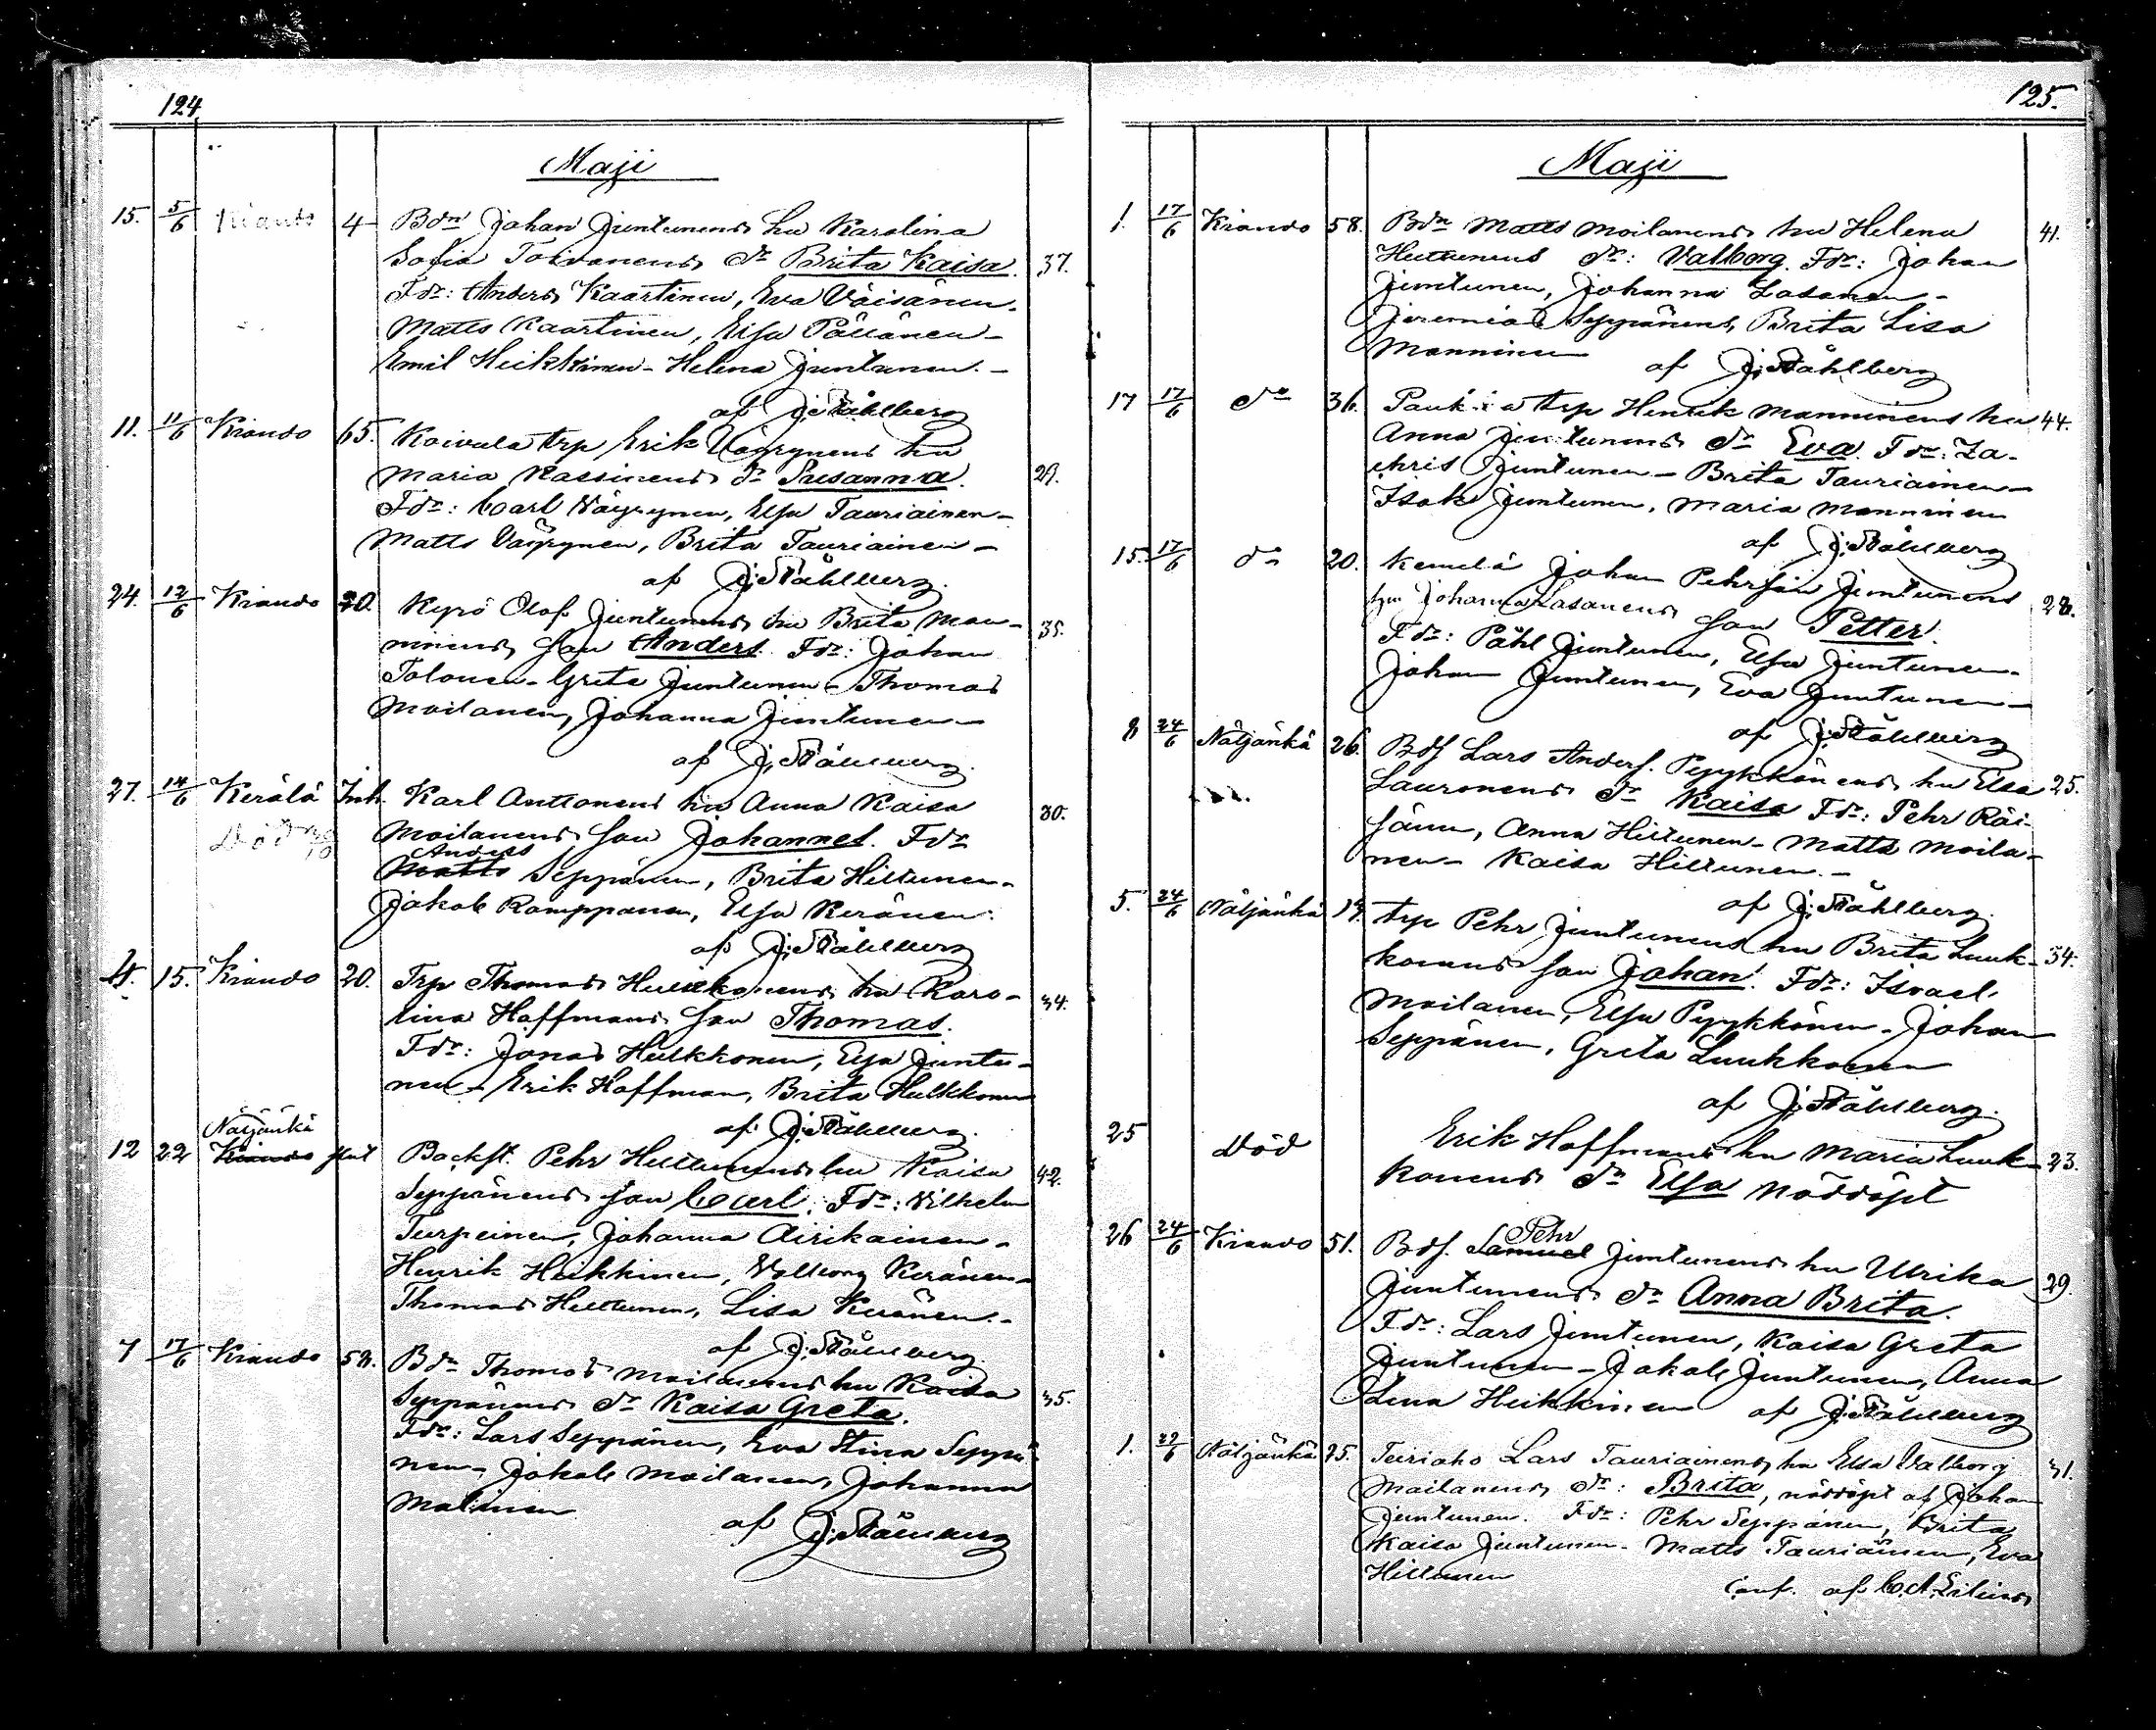 124
Maji
15. 5/6 Kianto 4 Bdn Johan Juntunens hu Karolina
Sofia Toivanens dr Brita Kaisa. 37.
Fdr: Anders Kaartinen, Eva Väisänen.
Matts Kaartinen, Elsa Pällänen -
Emil Heikkinen - Helena Juntunen. -
af J. Ståhlberg
11. 11/6 Kiando 65. Koivula trp Erik Väyrynens hu
Maria Kassinens dr Susanna. 29.
Fdr: Carl Väyrynen, Elsa Tauriainen -
Matts Väyrynen, Brita Tauriainen -
af J. Ståhlberg.
24. 12/6 Kiando 20. Kyrö Olof Juntunens hu Brita Man-
ninens son Anders. Fdr: Johan 35.
Tolonen - Greta Juntunen - Thomas
Moilanen, Johanna Juntunen -
af J. Ståhlberg.
27. 14/6 Kerälä Inh. Karl Anttonens hu Anna Kaisa
Död Moilanens son Johannes. Fdr 30.
Anders
Matts Seppänen, Brita Hiltunen -
Jakob Ramppanen, Elsa Keränen.
af J. Ståhlberg
4. 15. Kiando 20. Trp Thomas Hulkkonens hu Karo-
lina Hoffmans son Thomas. 34.
Fdr: Jonas Hulkkonen, Elsa Juntu-
nen - Erik Hoffman, Brita Hulkkonen
af J. Ståhlberg.
Näljänkä
12 22 Kiando Backst. Pehr Huttunens hu Kaisa
Seppänens son Carl. Fdr: Vilhelm 42.
Turpeinen, Johanna Airikainen -
Henrik Heikkinen, Valborg Keränen -
Thomas Huttunen, Lisa Keränen. -
af J. Ståhlberg.
7 17/6 Kiando 58. Bdn Thomas Moilanens hu Kaisa
Seppänens dr Kaisa Greta. 35.
Fdr: Lars Seppänen, Eva Stina Seppä-
nen - Jakob Moilanen, Johanna
Malinen
af J. Ståhlberg
125.
Maji
1. 17/6 Kiando 58. Bdn Matts Moilanens hu Helena 41.
Huttunens dr: Valborg. Fdr: Johan
Juntunen, Johanna Lasanen -
Jeremias Seppänen, Brita Lisa
Manninen af J. Ståhlberg
17 17/6 do 36. trp Henrik Manninens hu 44.
Anna Juntunens dr Eva. Fdr: Za-
chris Juntunen - Brita Tauriainen -
Isak Juntunen, Maria Manninen
af J. Ståhlberg
15. 17/6 do 20. Kemilä Johan Pehrsson Juntunens
hu Johanna Lasanens son Petter. 28.
Fdr: Påhl Juntunen, Elsa Juntunen -
Johan Juntunen, Eva Juntunen -
af J. Ståhlberg
8 24/6 Näljänkä 26. Bds Lars Anders. Pyykkönens hu Elsa 25.
Lauronens dr Kaisa Fdr: Pehr Räi-
sänen, Anna Hiltunen - Matts Moila-
nen - Kaisa Hiltunen. -
af J. Ståhlberg.
5. 24/6 Näljänkä 19. trp Pehr Juntunens hu Brita Luuk- 34.
konens son Johan. Fdr: Israel
Moilanen, Elsa Pyykkönen - Johan
Seppänen, Greta Luukkonen
af J. Ståhlberg.
25 Död Erik Hoffmans hu Maria Luuk- 23.
konens dr Elsa nöddöpt
Pehr
26 24/6 Kiando 51. Bds. Samuel Juntunens hu Ulrika
Juntunens dr Anna Brita. 29.
Fdr: Lars Juntunen, Kaisa Greta
Juntunen - Jakob Juntunen, Anna
Lena Heikkinen af J. Ståhlberg
1. 29/6 Näljänkä 25. Teiriaho Lars Tauriainens hu Elsa Valborg 31.
Moilanens dr: Brita, nöddöpt af Johan
Juntunen. Fdr: Pehr Seppänen, Brita
Kaisa Juntunen - Matts Tauriainen, Eva
Hiltunen conf. af C. A.